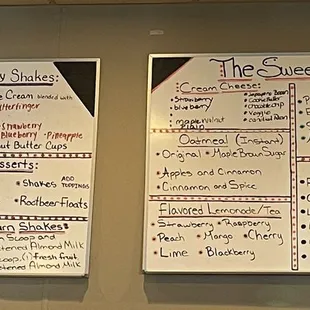 y Shakes:
e Cream blended with
utterfinger
Strawberry
Blueberry • Pineapple
ut Butter Cups
sserts:
• Shakes ADD TOPPINGS
• Rootbeer Floats
rn Shakes
Scoop and
etened Almond Milk
coop, (1) fresh fruit
etened Almond Milk
The Swee
Cream Cheese:
• Strawberry
• blueberry
• maple walnut
Plain
• Jalapeno Bacon
• Cookie Butter
• Chocolate chip
• Veggie
Oatmeal (Instant)
• Original • Maple Brown Sugar
• Apples and Cinnamon
• Cinnamon and Spice
Flavored Lemonade/Tea
• Strawberry • Raspberry
• Peach • Mango • Cherry
• Lime • Blackberry